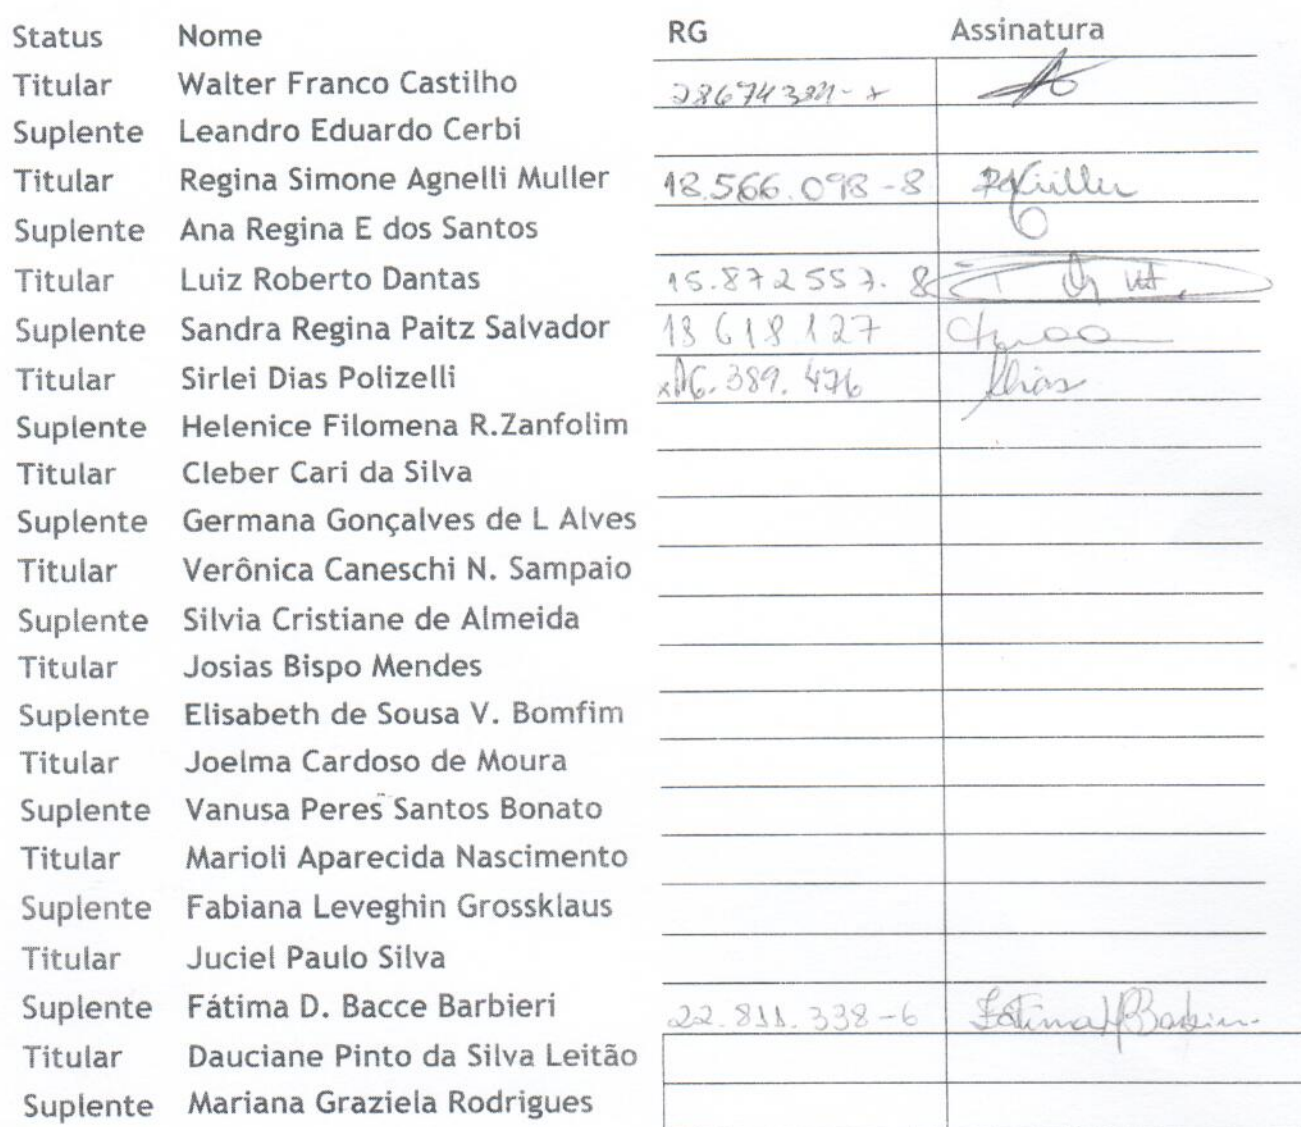 Status Nome RG Assinatura
Titular Walter Franco Castilho
Suplente Leandro Eduardo Cerbi
Titular Regina Simone Agnelli Muller 18.566.098-8
Suplente Ana Regina E dos Santos
Titular Luiz Roberto Dantas 15.872557.8
Suplente Sandra Regina Paitz Salvador 18 618 127
Titular Sirlei Dias Polizelli
Suplente Helenice Filomena R.Zanfolim
Titular Cleber Cari da Silva
Suplente Germana Gonçalves de L Alves
Titular Verônica Caneschi N. Sampaio
Suplente Silvia Cristiane de Almeida
Titular Josias Bispo Mendes
Suplente Elisabeth de Sousa V. Bomfim
Titular Joelma Cardoso de Moura
Suplente Vanusa Peres Santos Bonato
Titular Marioli Aparecida Nascimento
Suplente Fabiana Leveghin Grossklaus
Titular Juciel Paulo Silva
Suplente Fátima D. Bacce Barbieri 22.811.338-6
Titular Dauciane Pinto da Silva Leitão
Suplente Mariana Graziela Rodrigues